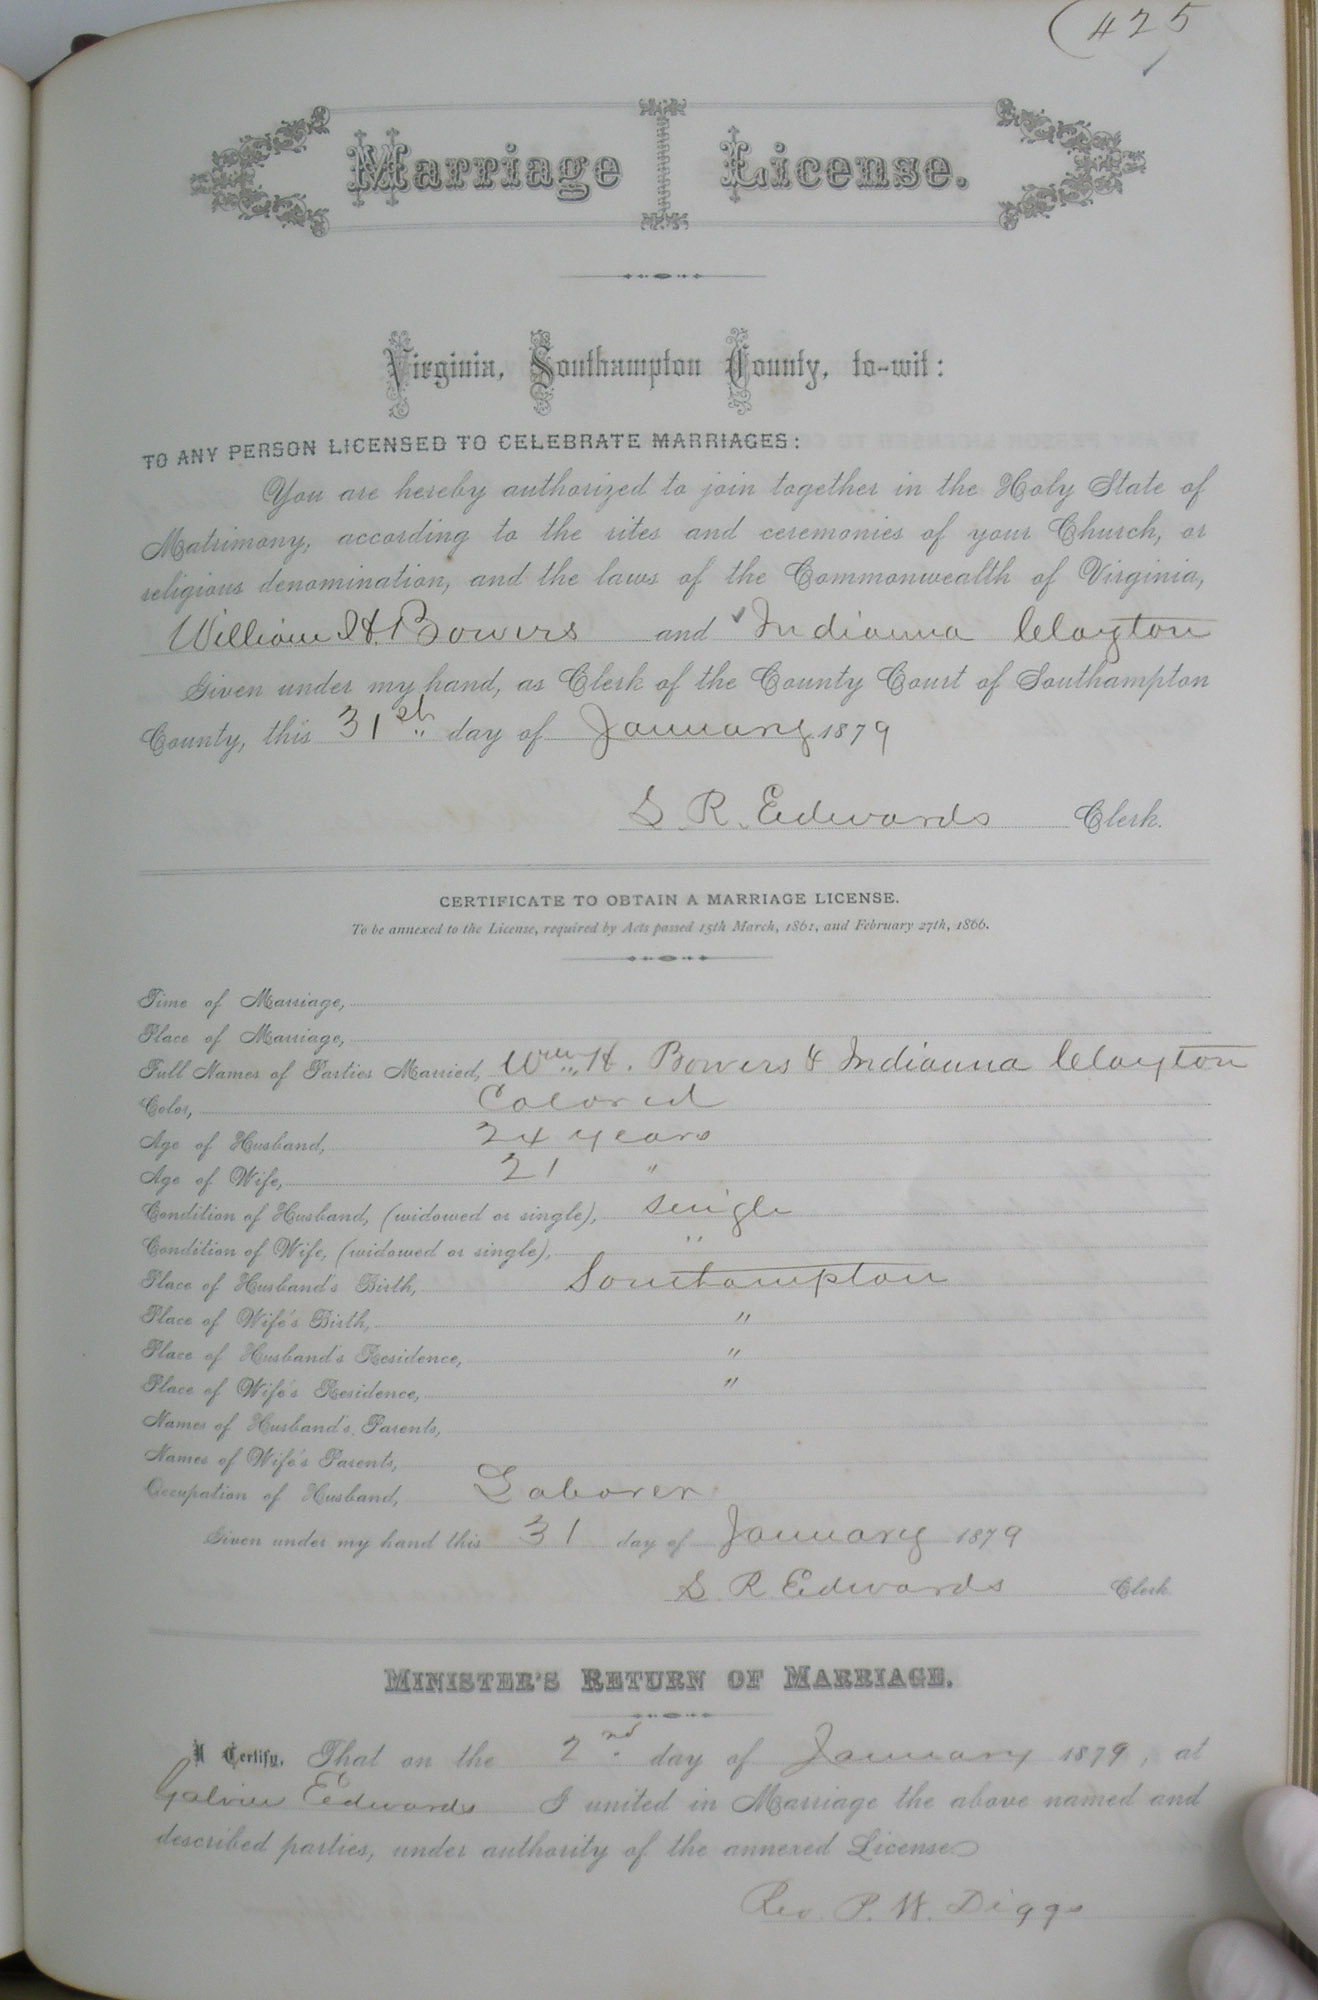 425
Marriage License.
Virginia, Southampton County, to-wit:
TO ANY PERSON LICENSED TO CELEBRATE MARRIAGES:
You are hereby authorized to join together in the Holy State of
Matrimony, according to the rites and ceremonies of your Church, or
religious denomination, and the laws of the Commonwealth of Virginia,
William H. Bowers and Indianna Clayton
Given under my hand, as Clerk of the County Court of Southampton
County, this 31st day of January 1879
L. R. Edwards Clerk.
CERTIFICATE TO OBTAIN A MARRIAGE LICENSE.
To be annexed to the License, required by Acts passed 15th March, 1861, and February 27th, 1866.
Time of Marriage,
Place of Marriage,
Full Names of Parties Married, Wm. H. Bowers & Indianna Clayton
Color, Colored
Age of Husband, 24 years
Age of Wife, 21 "
Condition of Husband, (widowed or single), Single
Condition of Wife, (widowed or single), "
Place of Husband's Birth, Southampton
Place of Wife's Birth, "
Place of Husband's Residence, "
Place of Wife's Residence, "
Names of Husband's Parents,
Names of Wife's Parents,
Occupation of Husband, Laborer
Given under my hand this 31 day of January 1879
L. R. Edwards Clerk
MINISTER'S RETURN OF MARRIAGE.
I Certify, That on the 2nd day of January 1879, at
Edwards I united in Marriage the above named and
described parties, under authority of the annexed License
Rev. P. W. Diggs